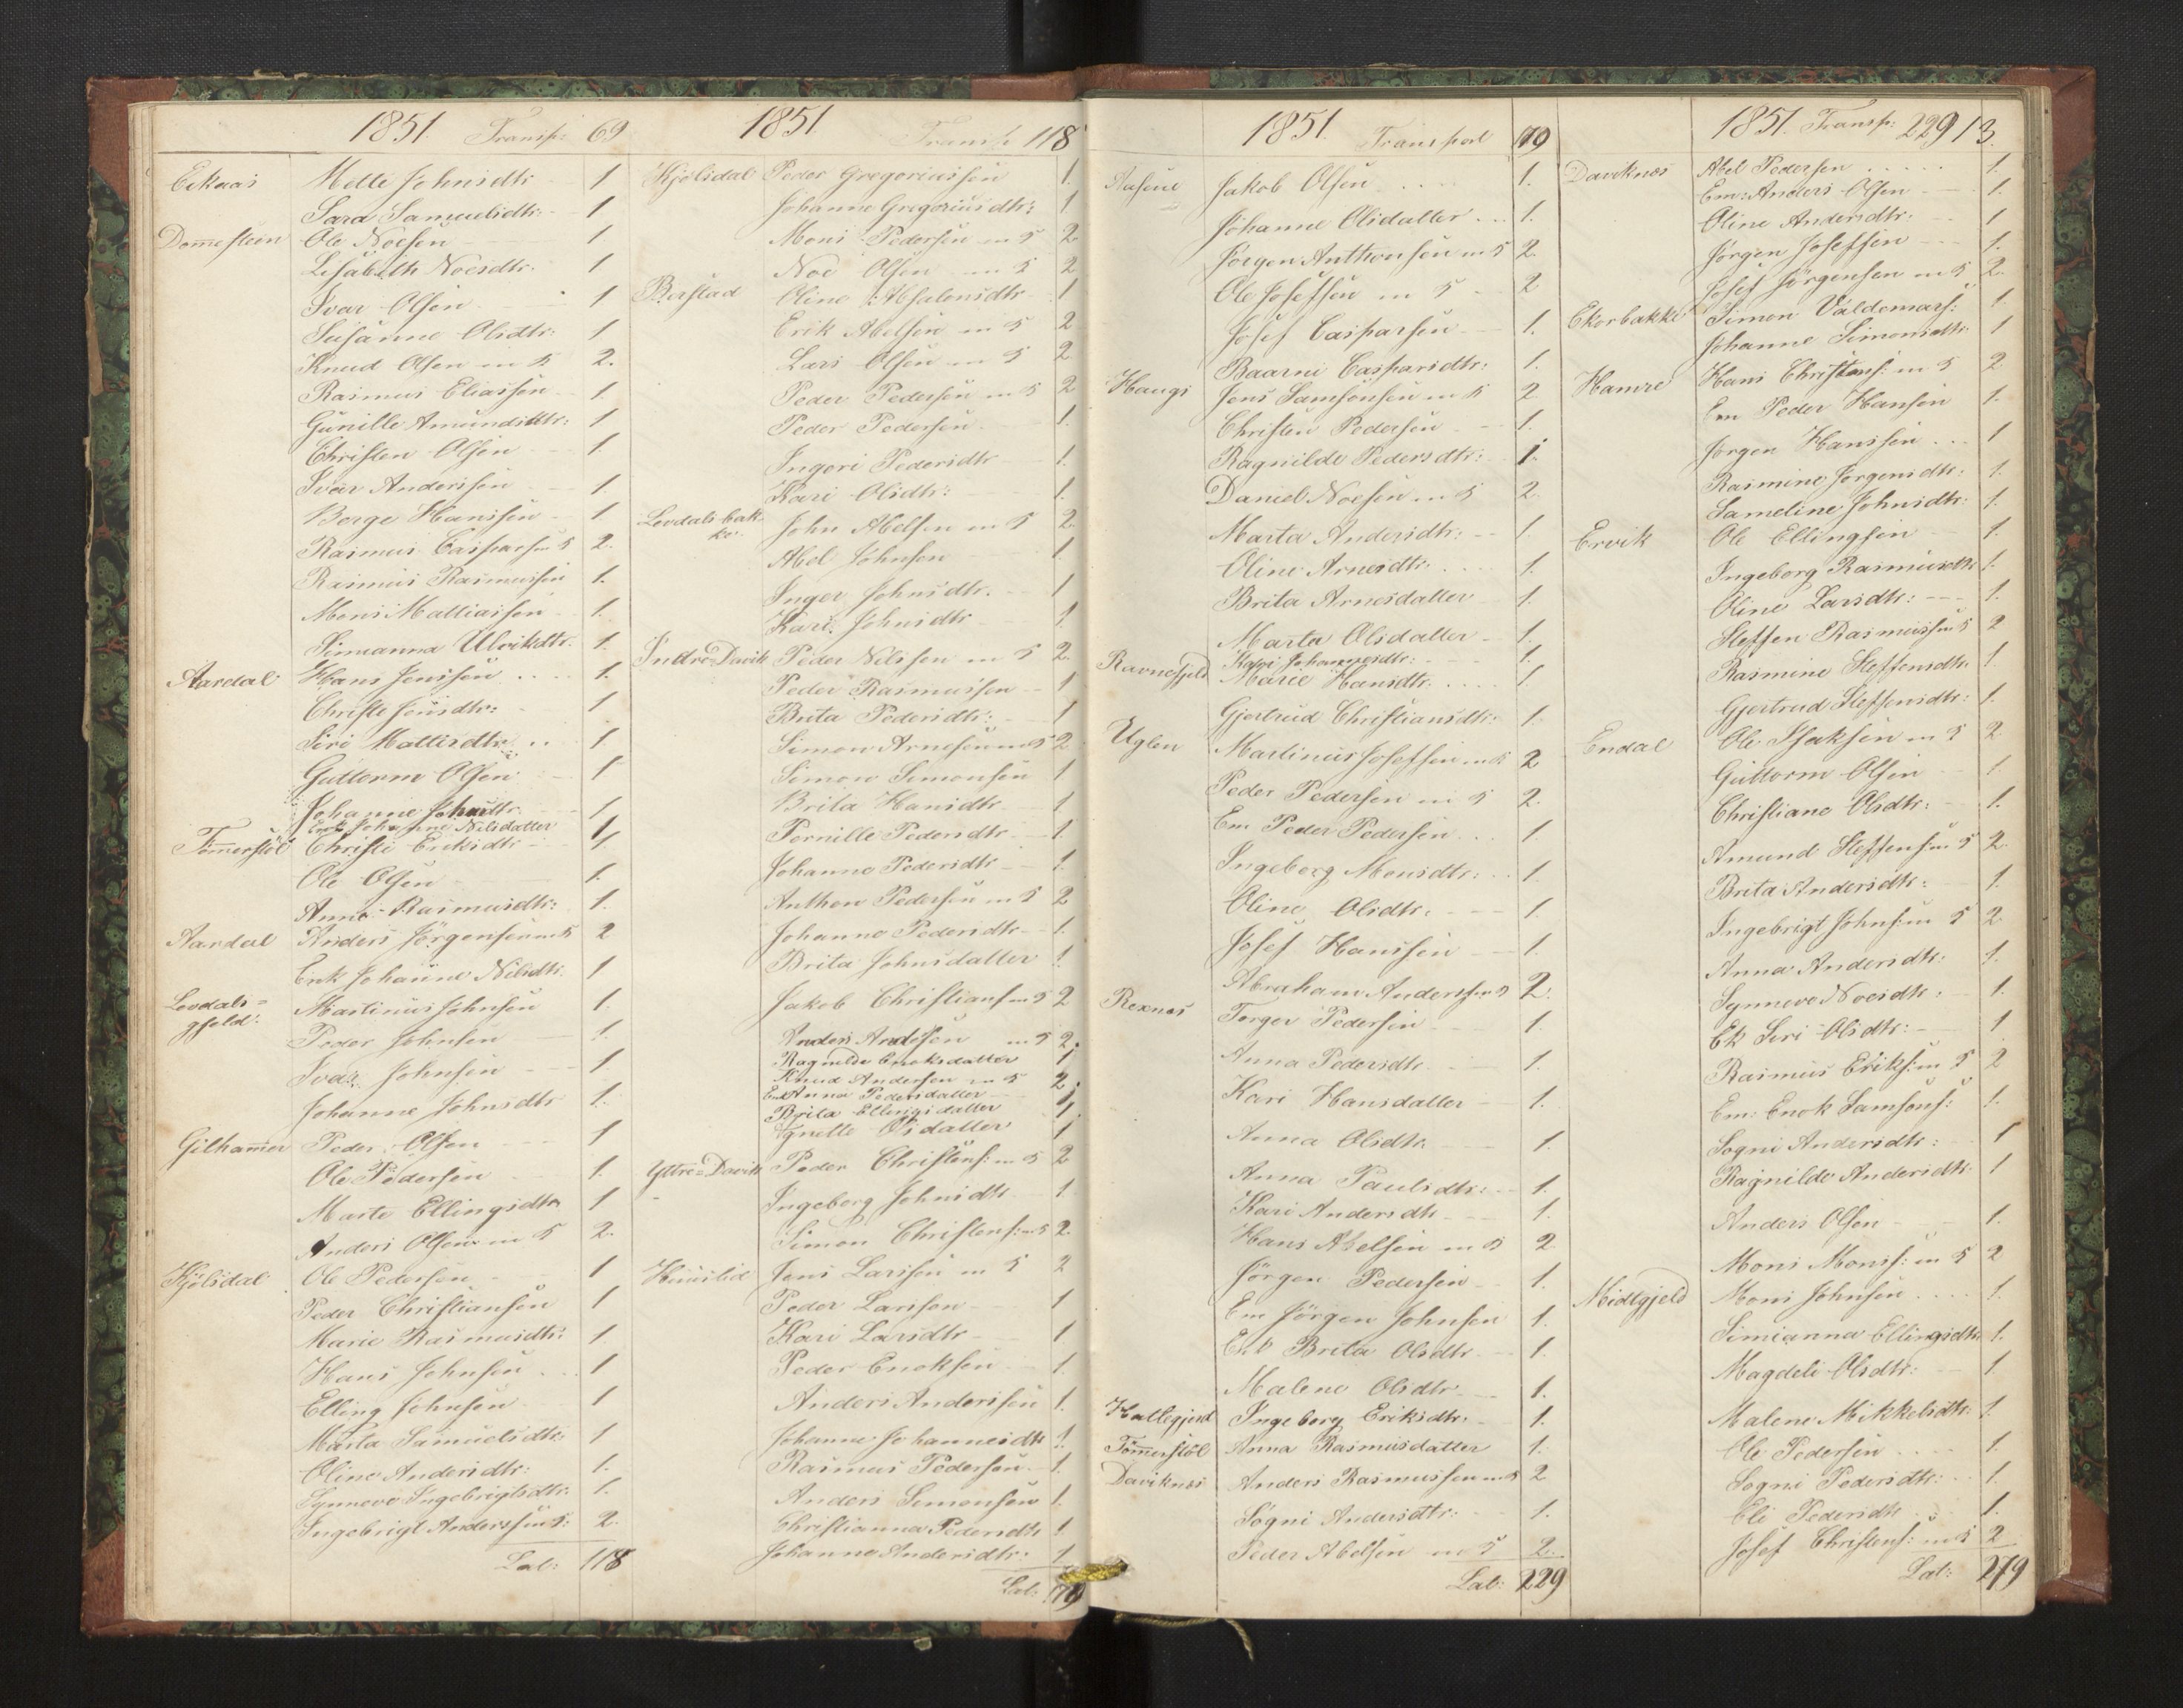 1851. Transp: 69
Eikaas Mette Johnsdtr 1
Sara Samuelsdtr: 1
Domestein Ole Noesen 1.
Lisabeth Noesdtr. 1
Ivar Olsen 1
Susanne Olsdtr: 1
Knud Olsen m 5 2.
Rasmus Eliassen 1.
Gunille Amundsdtr: 1
Christen Olsen 1.
Ivar Anderssen 1.
Berge Hanssen 1
Rasmus Casparsen 5 2.
Rasmus Rasmussen 1.
Mons Mattiassen 1.
Simianna Ulrikdtr. 1.
Aardal Hans Jenssen 1.
Christi Jensdtr: 1
Siri Mattisdtr: 1.
Guttorm Olsen 1
Johanne Johnsdtr. 1
Enk Johanne Nilsdatter 1
Tommerstöl Christi Eriksdtr 1.
Ole Olsen 1.
Anne Rasmusdtr: 1.
Aardal Anders Jörgensen m 5 2
Enk Johanne Nilsdtr. 1
Levdals=
gjeld: Martinus Johnsen 1.
Peder Johnsen 1.
Ivar Johnsen 1
Johanne Johnsdtr 1.
Gilhammer Peder Olsen 1
Ole Pedersen 1.
Marte Ellingsdtr 1
Anders Olsen m 5 2.
Hjölsdal Ole Pedersen 1
Peder Christiansen 1
Marie Rasmusdtr: 1.
Hans Johnsen 1
Elling Johnsen 1
Marta Samuelsdtr: 1
Oline Andersdtr: 1.
Synneve Ingebrigtsdtr: 1.
Ingebrigt Anderssen 5: 2.
Lat: 118
1851 Transp 118
Hjölsdal Peder Gregoriussen 1.
Johanne Gregoriusdtr: 1
Mons Pedersen m 5 2
Noe Olsen m 5 2
Berstad Oline Absalonsdtr 1
Erik Abelsen m 5 2
Lars Olsen m 5 2
Peder Pedersen m 5 2
Peder Pedersen 1.
Ingeri Pedersdtr 1.
Kari Olsdtr: 1.
Levdalsbak-
ke. John Abelsen m 5 2.
Abel Johnsen 1.
Inger Johnsdtr. 1
Kari Johnsdtr 1
Indre=Davik Peder Nilssen m 5 2.
Peder Rasmussen 1
Brita Pedersdtr: 1
Simon Arnesen m 5 2
Simon Simonsen 1
Brita Hansdtr. 1
Pernille Pedersdtr 1.
Johanne Pedersdtr 1.
Anthon Pedersen m 5 2
Johanne Pedersdtr 1.
Brita Johnsdatter 1.
Jakob Christians m 5 2
Anders Andersen m 5 2.
Ragnilde Enoksdatter 1
Knud Andersen m 5 2.
Enk Anna Pedersdatter 1.
Brita Ellingsdatter 1.
Agnette Olsdatter 1
Yttre=Davik Peder Christens: m 5 2
Ingeborg Johnsdtr 1
Simon Christens: m 5 2.
Jens Larssen m 5 2
Peder Larssen 1
Kari Larsdtr 1
Peder Enoksen 1.
Anders Anderssen 1.
Johanne Johannesdtr 1.
Rasmus Pedersen 1.
Anders Simonsen 1.
Christianna Pedersdtr 1.
Johanna Andersdtr: 1
Lat: 179
1851. Transport 179
Aasene Jakob Olsen 1.
Johanne Olsdatter 1.
Jörgen Anthonsen m 5 2.
Ole Josefsen m 5 2
Josef Casparsen 1.
Baarni Caspersdtr: 1.
Haugs Jens Samsonsen m 5 2
Christen Pedersen 1.
Ragnilde Pedersdtr: 1.
Daniel Noesen m 5 2.
Marta Andersdtr: 1.
Oline Arnesdtr. 1.
Brita Arnesdatter 1.
Marta Olsdatter 1.
Ravnefjeld Kari Johannesdtr: 1.
Marie Hansdtr: 1.
Gjertrud Christiansdtr: 1.
Uglen Martinus Josefsen m 5 2
Peder Pedersen m 5 2.
Em Peder Pedersen 1.
Ingeborg Monsdtr: 1.
Oline Olsdtr. 1.
Josef Hanssen 1.
Abraham Anderssen 5 2.
Rexnæs Torger Pedersen 1.
Anna Pedersdtr. 1.
Kari Hansdatter 1.
Anna Olsdtr. 1.
Anna Paulsdtr: 1.
Kari Andersdtr 1.
Hans Abelsen m 5 2.
Jörgen Pedersen 1.
Em Jörgen Johnsen 1.
Enk Brita Olsdtr. 1.
Malene Olsdtr 1.
Hattegjerd Ingeborg Eriksdtr: 1.
Tommerstöl Anna Rasmusdatter 1.
Daviknæs Anders Rasmussen m 5 2
Sogni Andersdtr: 1.
Peder Abelsen m 5 2.
Lat: 229
1851. Transp: 229 / 3.
Daviknæs Abel Pedersen 1.
Em: Anders Olsen 1.
Oline Andersdtr: 1
Jörgen Josefsen 1.
Josef Jörgensen m 5 2.
Ekorbakke Simon Valdemars: 1.
Johanne Simonsdtr 1
Hamre Hans Christens: m 5 2
Em Peder Hansen 1.
Jörgen Hanssen 1
Rasmine Jörgensdtr: 1.
Sameline Johnsdtr: 1.
Ervik Ole Ellingsen 1.
Ingeborg Rasmusdtr 1.
Oline Larsdtr: 1.
Steffen Rasmussen 5 2
Rasmine Steffensdtr. 1
Gjertrud Steffensdtr: 1.
Endal Ole Isaksen m 5 2
Guttorm Olsen 1
Christiane Olsdtr: 1.
Amund Steffensen 5 2.
Brita Andersdtr: 1.
Ingebrigt Johns: m 5 2
Anna Andersdtr: 1.
Synneve Noesdtr: 1.
Ek Siri Olsdtr: 1
Rasmus Eriks: m 5 2
Em: Enok Samsons: 1.
Sogni Andersdtr: 1
Ragnilde Andersdtr: 1
Anders Olsen 1.
Mons Monss: m 5 2
Midtgjeld Mons Johnsen 1.
Simianna Ellingsdtr. 1.
Magdeli Olsdtr: 1
Malene Mikkelsdtr: 1.
Ole Pedersen 1.
Sogni Pedersdtr: 1.
Eli Pedersdtr 1.
Josef Christens: m 5 2
Lat: 279